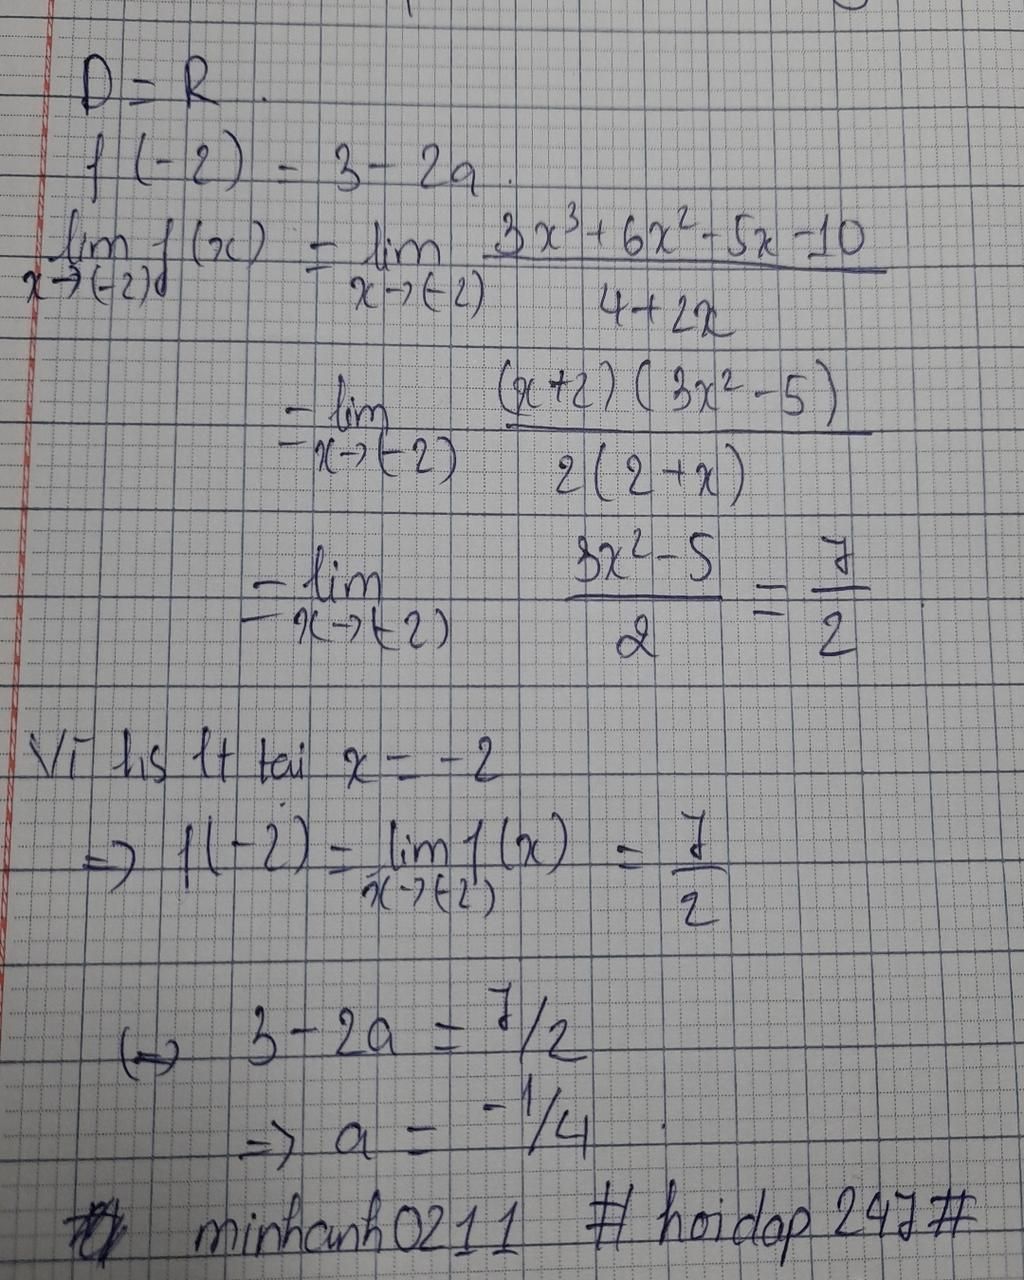 D = R.
f(-2) = 3 - 2a.
lim f(x) = lim (3x³ + 6x² - 5x - 10)/(4 + 2x)
x→(-2) x→(-2)
= lim ((x+2)(3x² - 5))/(2(2+x))
x→(-2)
= lim (3x² - 5)/2 = 7/2
x→(-2)
Vì hs lt tại x = -2
=> f(-2) = lim f(x) = 7/2
x→(-2)
<=> 3 - 2a = 7/2
=> a = -1/4.
minhanh0211 # hoidap247#